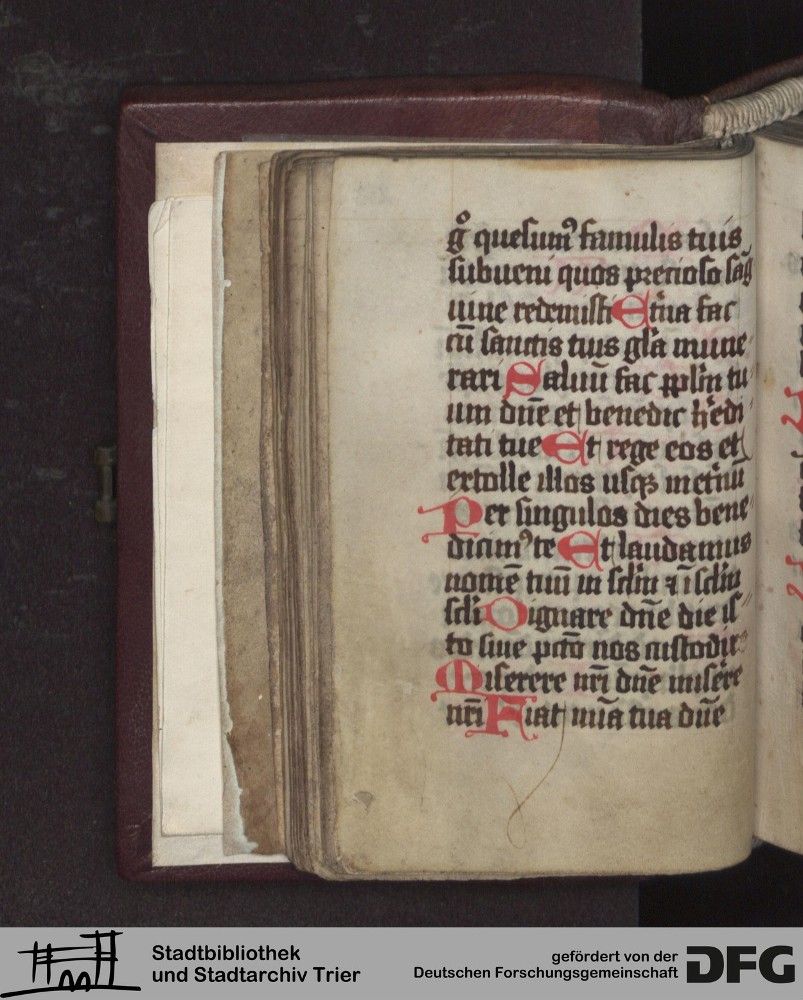 gͦ quesum⁹ famulis tuis
subueni quos precioso sāg
uine redemisti Et̄na fac
cū sanctis tuis gl̄a mune
rari Saluū fac pplm̄ tu
um dn̄e et benedic h̄edi
tati tue Et rege eos et
extolle illos usqꝫ in et̄nū
Per singulos dies bene
dicim⁹ te Et laudamus
nomē tuū in scl̄m ⁊ ī scl̄m
scl̄i Dignare dn̄e die is
to sine pctō nos custodir
Miserere nr̄i dn̄e misere
nr̄i Fiat mīa tua dn̄e
Stadtbibliothek
und Stadtarchiv Trier
gefördert von der
Deutschen Forschungsgemeinschaft
DFG